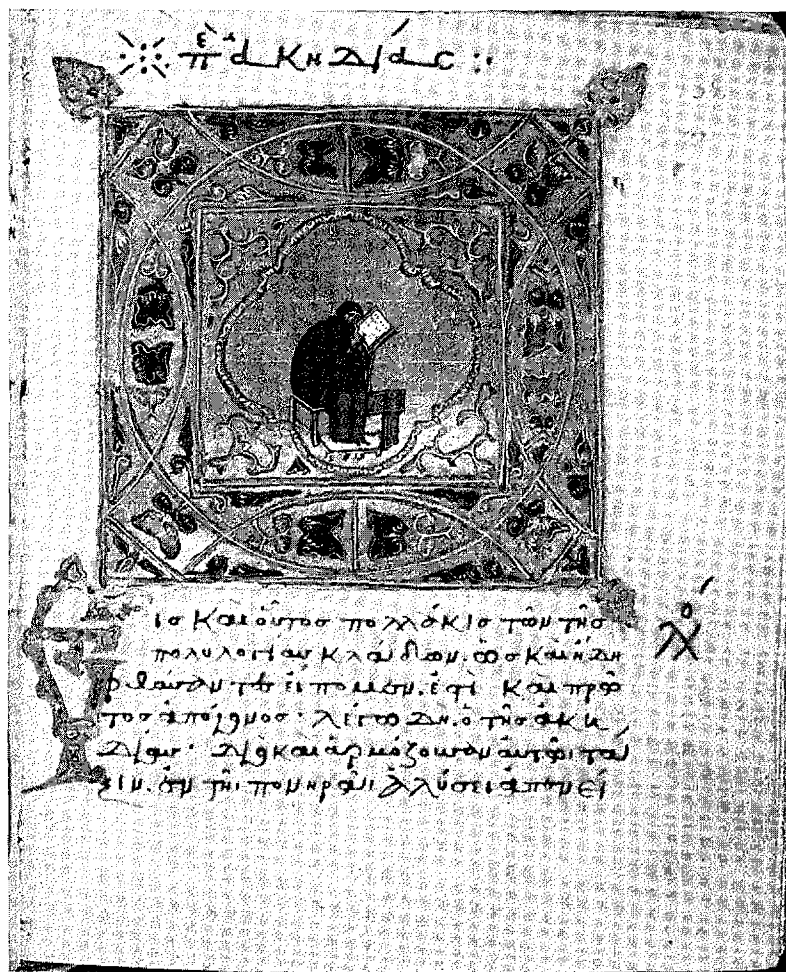 π̀ε ἀκηδίας :·
Εἷς καὶ οὗτος πολλάκις τῶν τῆς
πολυλογίας κλάδων. ὡς καὶ ἤδη
φθάσαντες εἴπομεν. ἐστὶ καὶ πρῶ
τος ἀπόγονος· λέγω δὴ. ὁ τῆς ἀκη
δίας· διὸ καὶ ἁρμόζουσαν αὐτῶι τά
ξιν. ἐν τῆι πονηρᾶι ἁλύσει ἀπονεί